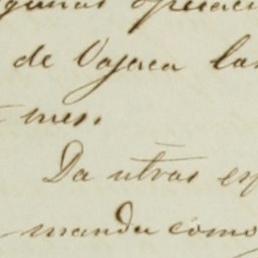 de Oajaca las
mes.
Da utras esp
mandu como